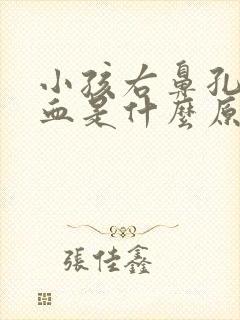 小孩右鼻孔
血是什麼原
張佳鑫